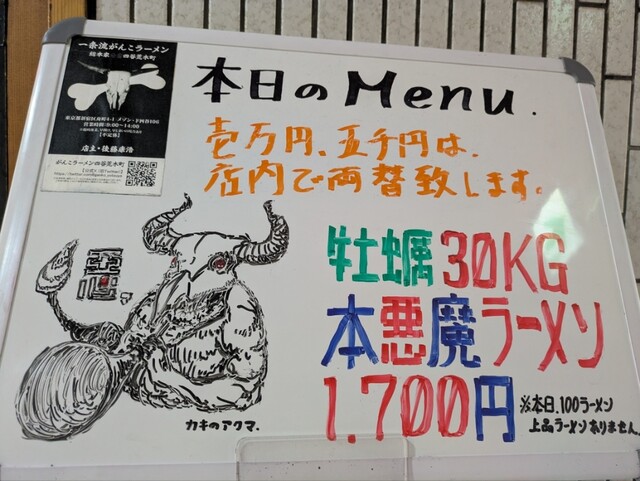 一条流がんこラーメン
総本家 四谷荒木町
営業時間:9:00～14:00
【不定休】
店主・後藤康浩
がんこラーメン四谷荒木町
本日のMenu.
壱万円、五千円は、
店内で両替致します。
牡蠣30KG
本悪魔ラーメン
1.700円
※本日.100ラーメン
上品ラーメンありません.
カキのアクマ.